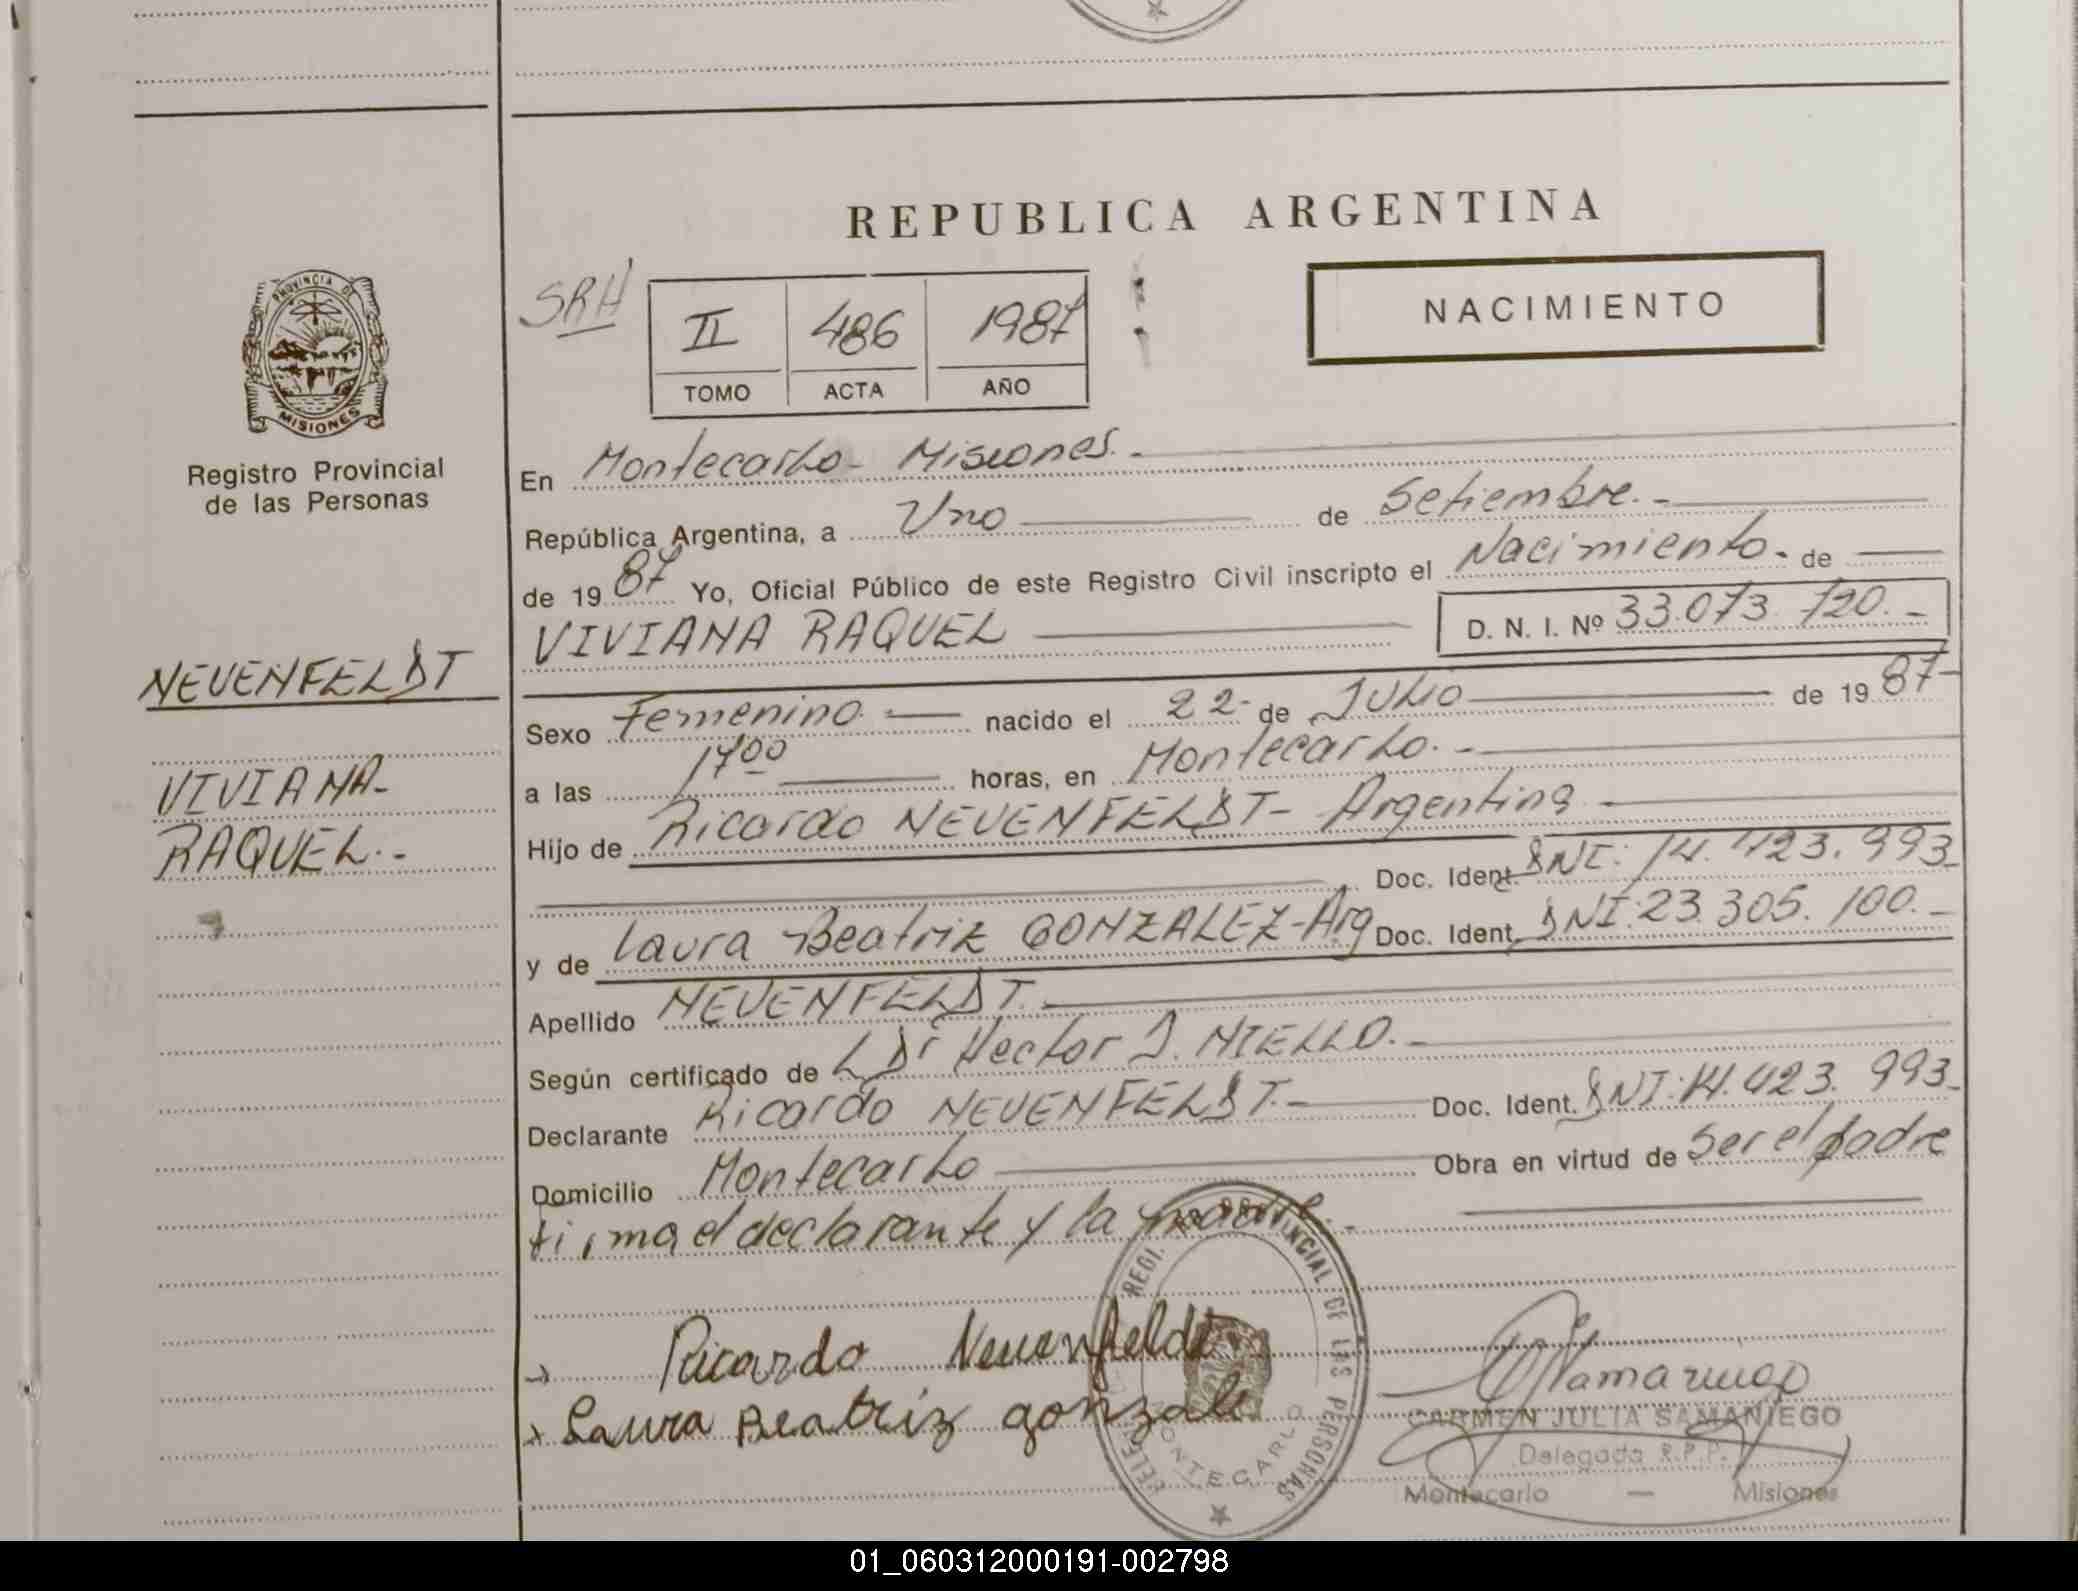 REPUBLICA ARGENTINA
PROVINCIA DE
MISIONES
Registro Provincial
de las Personas
SRH
II 486 1987
TOMO ACTA AÑO
NACIMIENTO
En Montecarlo - Misiones.-
República Argentina, a Uno de Setiembre.-
de 1987 Yo, Oficial Público de este Registro Civil inscripto el Nacimiento. de
VIVIANA RAQUEL D. N. I. Nº 33.073.720.-
NEUENFELDT
VIVIANA-
RAQUEL.-
Sexo Femenino.- nacido el 22- de Julio de 1987-
a las 17⁰⁰ horas, en Montecarlo.-
Hijo de Ricardo NEUENFELDT- Argentina
Doc. Ident. DNI: 14.423.993-
y de Laura Beatriz GONZALEZ-Arg Doc. Ident. DNI: 23.305.100.-
Apellido NEUENFELDT.
Según certificado de Dr Hector J. MIELLO.-
Declarante Ricardo NEUENFELDT.- Doc. Ident. DNI: 14.423.993-
Domicilio Montecarlo Obra en virtud de Ser el padre
firma el declarante y la madre.-
Ricardo Neuenfeldt
Laura Beatriz gonzale
REGI. PROVINCIAL DE LAS PERSONAS
MONTECARLO
CARMEN JULIA SAMANIEGO
Delegada R.P.P.
Montecarlo — Misiones
01_060312000191-002798